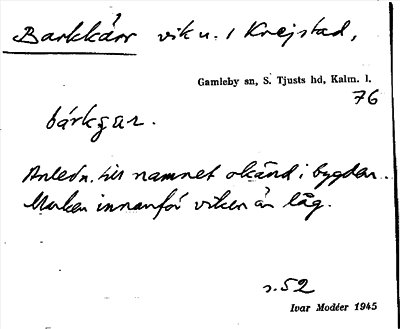 Barkkärr vik u. / Krejstad,
Gamleby sn, S. Tjusts hd, Kalm. l.
76
bárkçar.
Anledn. till namnet okänd i bygden.
Marken innanför viken är låg.
s. 52
Ivar Modéer 1945